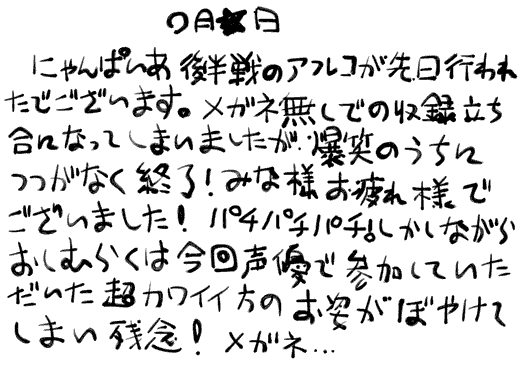 ○月★日
にゃんぱいあ後半戦のアフレコが先日行われ
たでございます。メガネ無しでの収録立ち
合になってしまいましたが、爆笑のうちに
つつがなく終了！みな様お疲れ様で
ございました！パチパチパチ。しかしながら
おしむらくは今回声優で参加していた
だいた超カワイイ方のお姿がぼやけて
しまい残念！メガネ…